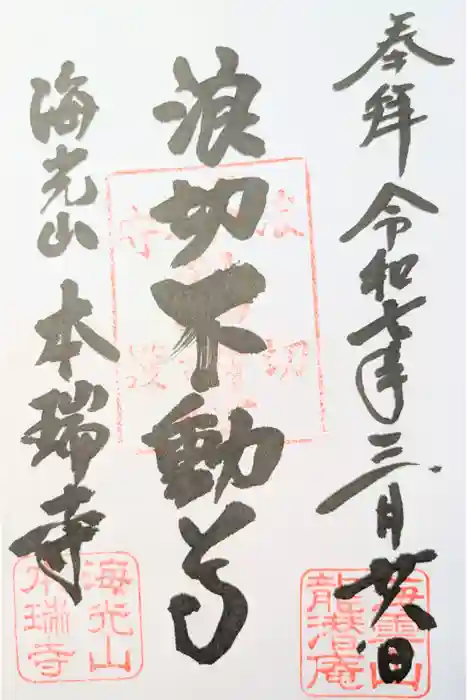 奉拝 令和七年三月廿八日
浪切不動尊
海光山 本瑞寺
海光山
本瑞寺
海雲山